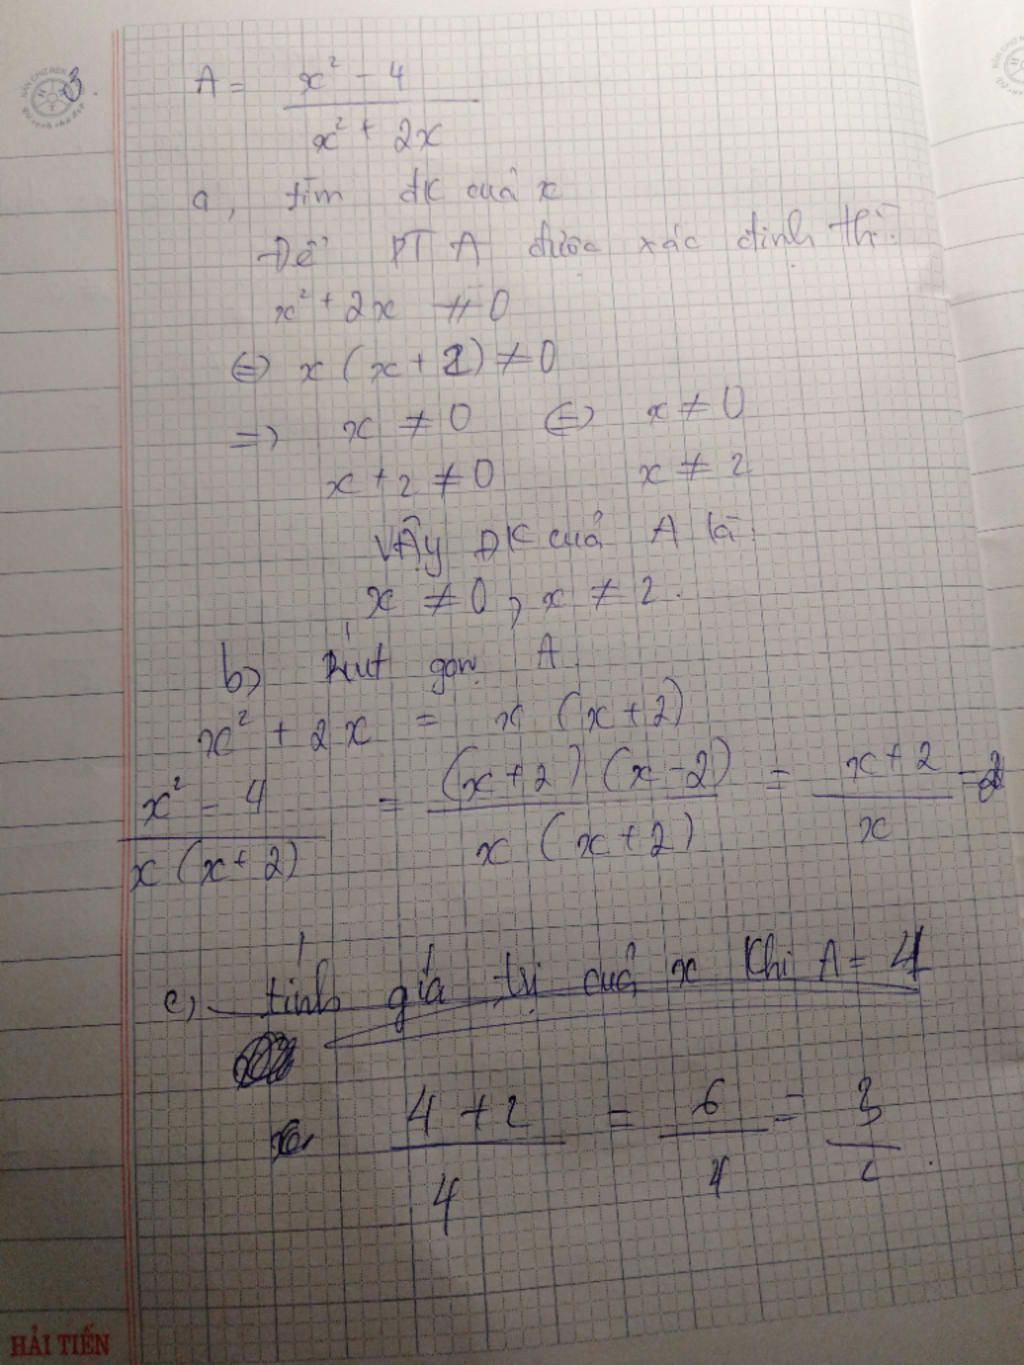 3.
A = x² - 4 / x² + 2x
a, tìm đk của x
Để PT A được xác định thì:
x² + 2x ≠ 0
⇔ x (x + 2) ≠ 0
⇒ x ≠ 0 ⇔ x ≠ 0
x + 2 ≠ 0 x ≠ 2
Vậy ĐK của A là:
x ≠ 0, x ≠ 2.
b) Rút gọn A
x² + 2x = x (x + 2)
x² - 4 / x (x + 2) = (x + 2) (x - 2) / x (x + 2) = x + 2 / x
c) tính giá trị của x khi A = 4
4 + 2 / 4 = 6 / 4 = 3 /
HẢI TIẾN